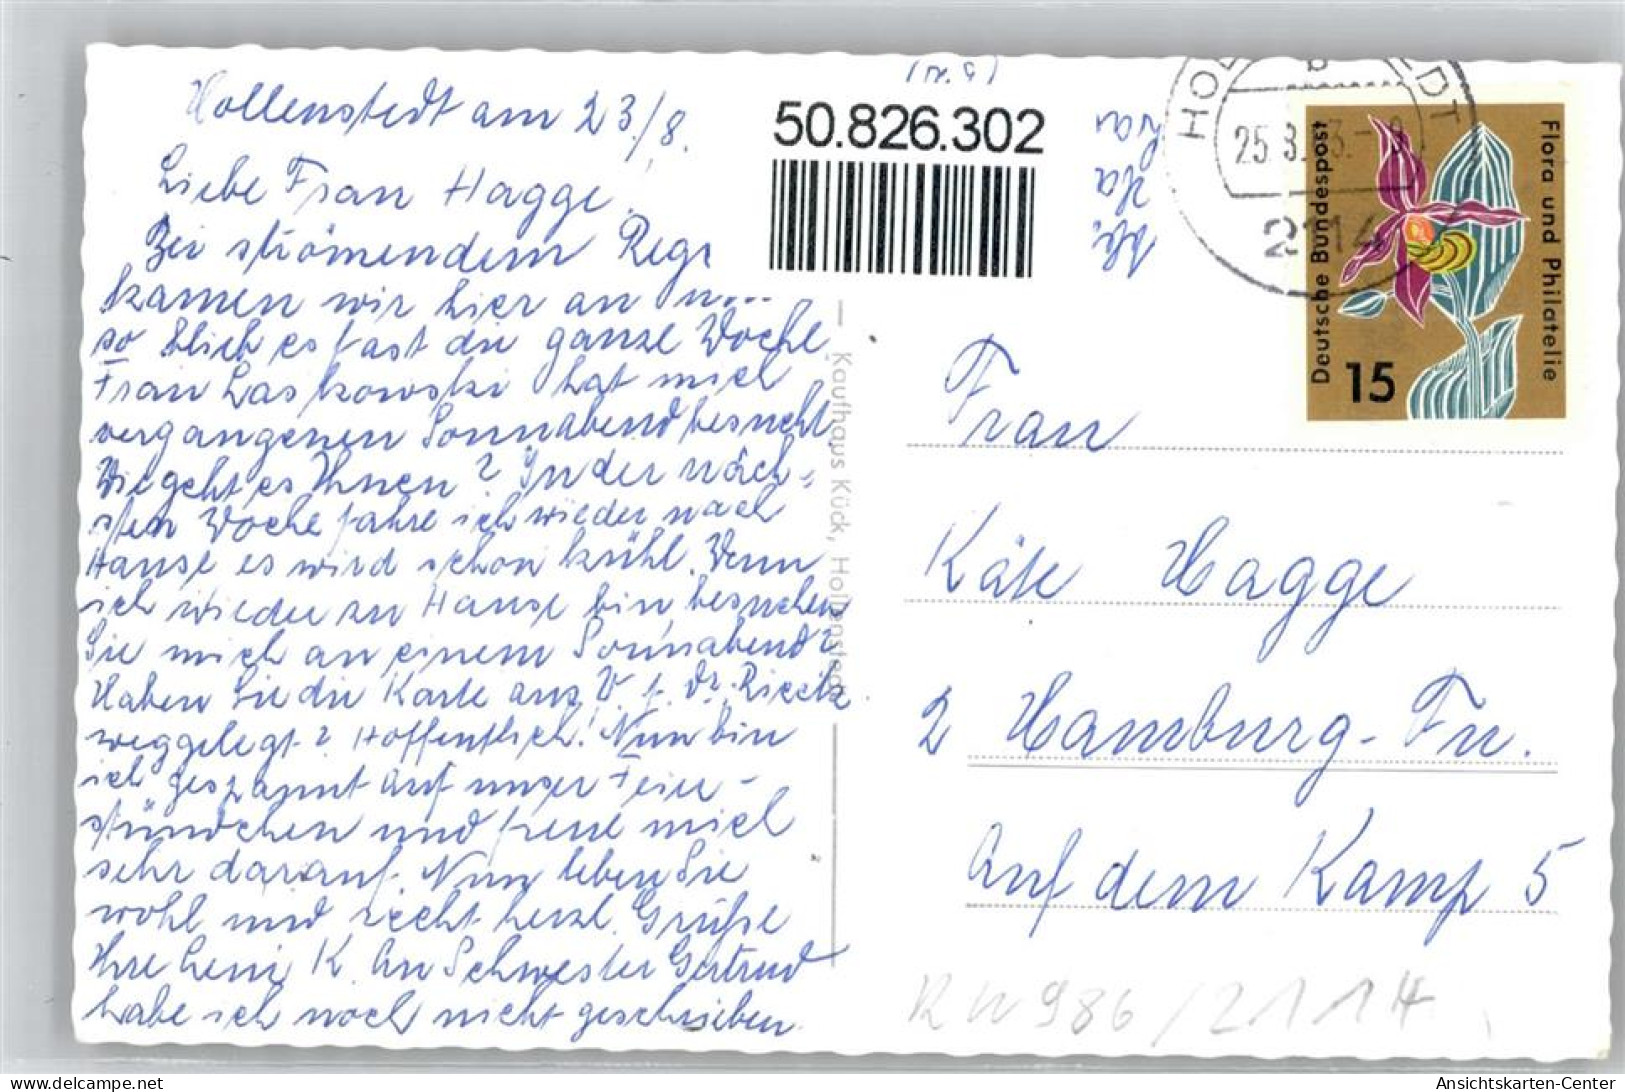 Hollenstedt am 23./8.
Liebe Frau Hagge!
Bei strömendem Rege
kamen wir hier an u
so blieb es fast die ganze Woche
Frau Laskowski hat mich
vergangenen Sonnabend besucht.
Wie geht es Ihnen? In der näch-
sten Woche fahre ich wieder nach
Hause es wird schon kühl. Wenn
ich wieder zu Hause bin, besuchen
Sie mich an einem Sonnabend?
Haben Sie die Karte aus V. f. Dr.
weggelegt? Hoffentlich! Nun bin
ich gespannt auf unser Feier-
stündchen und freue mich
sehr darauf. Nun leben Sie
wohl und recht herzl. Grüße
Ihre Leni K. An Schwester Gertrud
habe ich noch nicht geschrieben.
50.826.302
Kaufhaus Kück, Hollenstedt
25.8.
2114
Deutsche Bundespost
Flora und Philatelie
15
Frau
Käte Hagge
2 Hamburg-Fu.
Auf dem Kamp 5
KW986/2114
www.delcampe.net
Ansichtskarten-Center